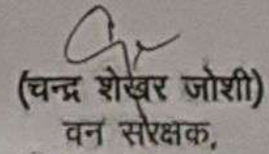 (चन्द्र शेखर जोशी)
वन संरक्षक,